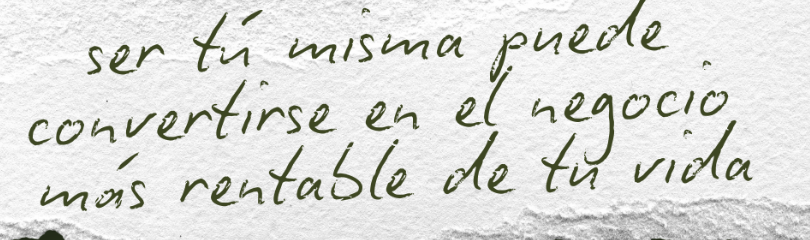 ser tú misma puede
convertirse en el negocio
más rentable de tu vida